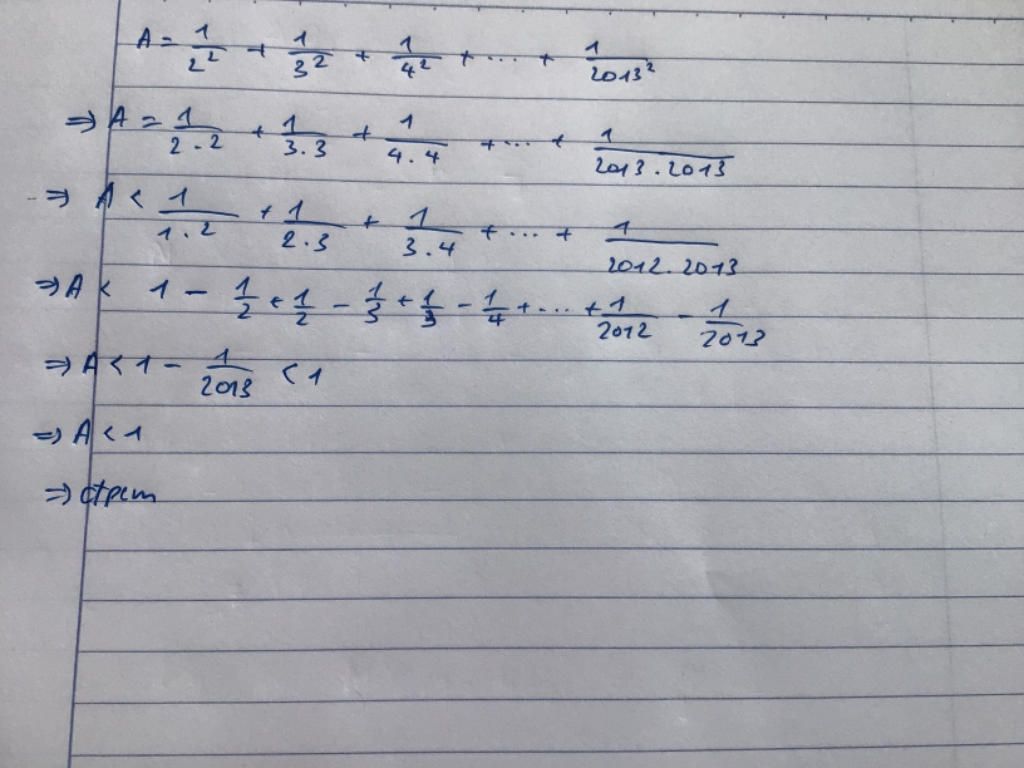 A = 1/2² + 1/3² + 1/4² + ... + 1/2013²
=> A = 1/2.2 + 1/3.3 + 1/4.4 + ... + 1/2013.2013
=> A < 1/1.2 + 1/2.3 + 1/3.4 + ... + 1/2012.2013
=> A < 1 - 1/2 + 1/2 - 1/3 + 1/3 - 1/4 + ... + 1/2012 - 1/2013
=> A < 1 - 1/2013 < 1
=> A < 1
=> đpcm